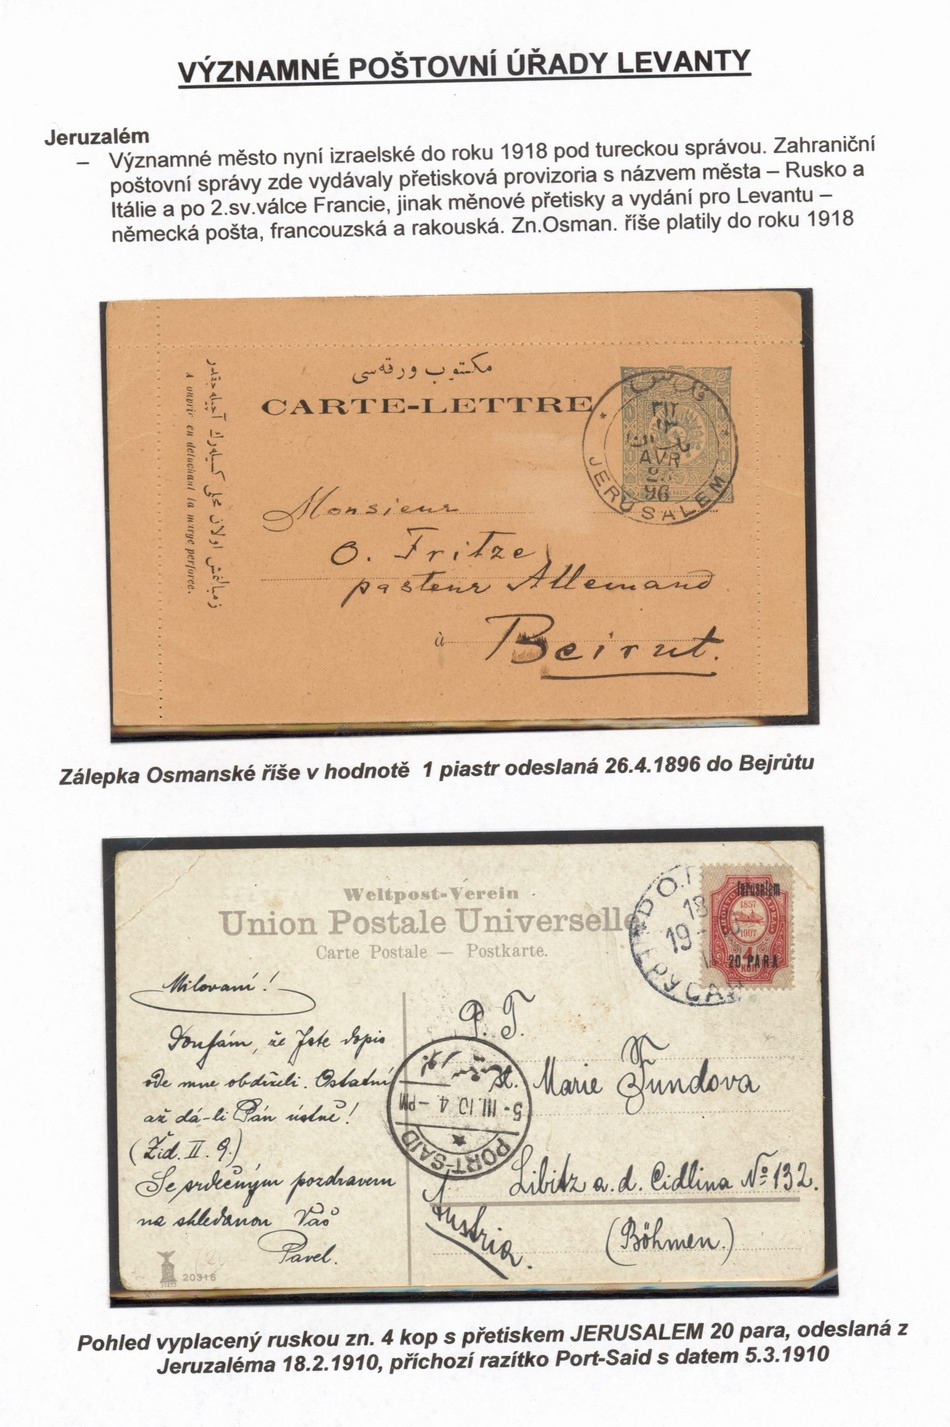 VÝZNAMNÉ POŠTOVNÍ ÚŘADY LEVANTY
Jeruzalém
– Významné město nyní izraelské do roku 1918 pod tureckou správou. Zahraniční
poštovní správy zde vydávaly přetisková provizoria s názvem města – Rusko a
Itálie a po 2.sv.válce Francie, jinak měnové přetisky a vydání pro Levantu –
německá pošta, francouzská a rakouská. Zn.Osman. říše platily do roku 1918
مكتوب ورقه سی
CARTE-LETTRE
A ouvrir en détachant la marge perforée.
قدس
AVR
96
JERUSALEM
Monsieur
O. Fritze
pasteur Allemand
à Beirut.
Zálepka Osmanské říše v hodnotě 1 piastr odeslaná 26.4.1896 do Bejrůtu
Weltpost-Verein
Union Postale Universelle
Carte Postale — Postkarte.
Jerusalem
1857
1907
4
20 PARA
18
19
Milovaní!
Doufám, že Jste dopis
ode mne obdrželi. Ostatní
až dá-li Pán ústně!
(Žid. II. 9.)
Se srdečným pozdravem
na shledanou Váš
Pavel.
20316
P. T.
Marie Fundova
Libitz a. d. Cidlina No 132.
(Böhmen.)
Austria.
5-III.10.4-PM
PORT-SAID
Pohled vyplacený ruskou zn. 4 kop s přetiskem JERUSALEM 20 para, odeslaná z
Jeruzaléma 18.2.1910, příchozí razítko Port-Said s datem 5.3.1910